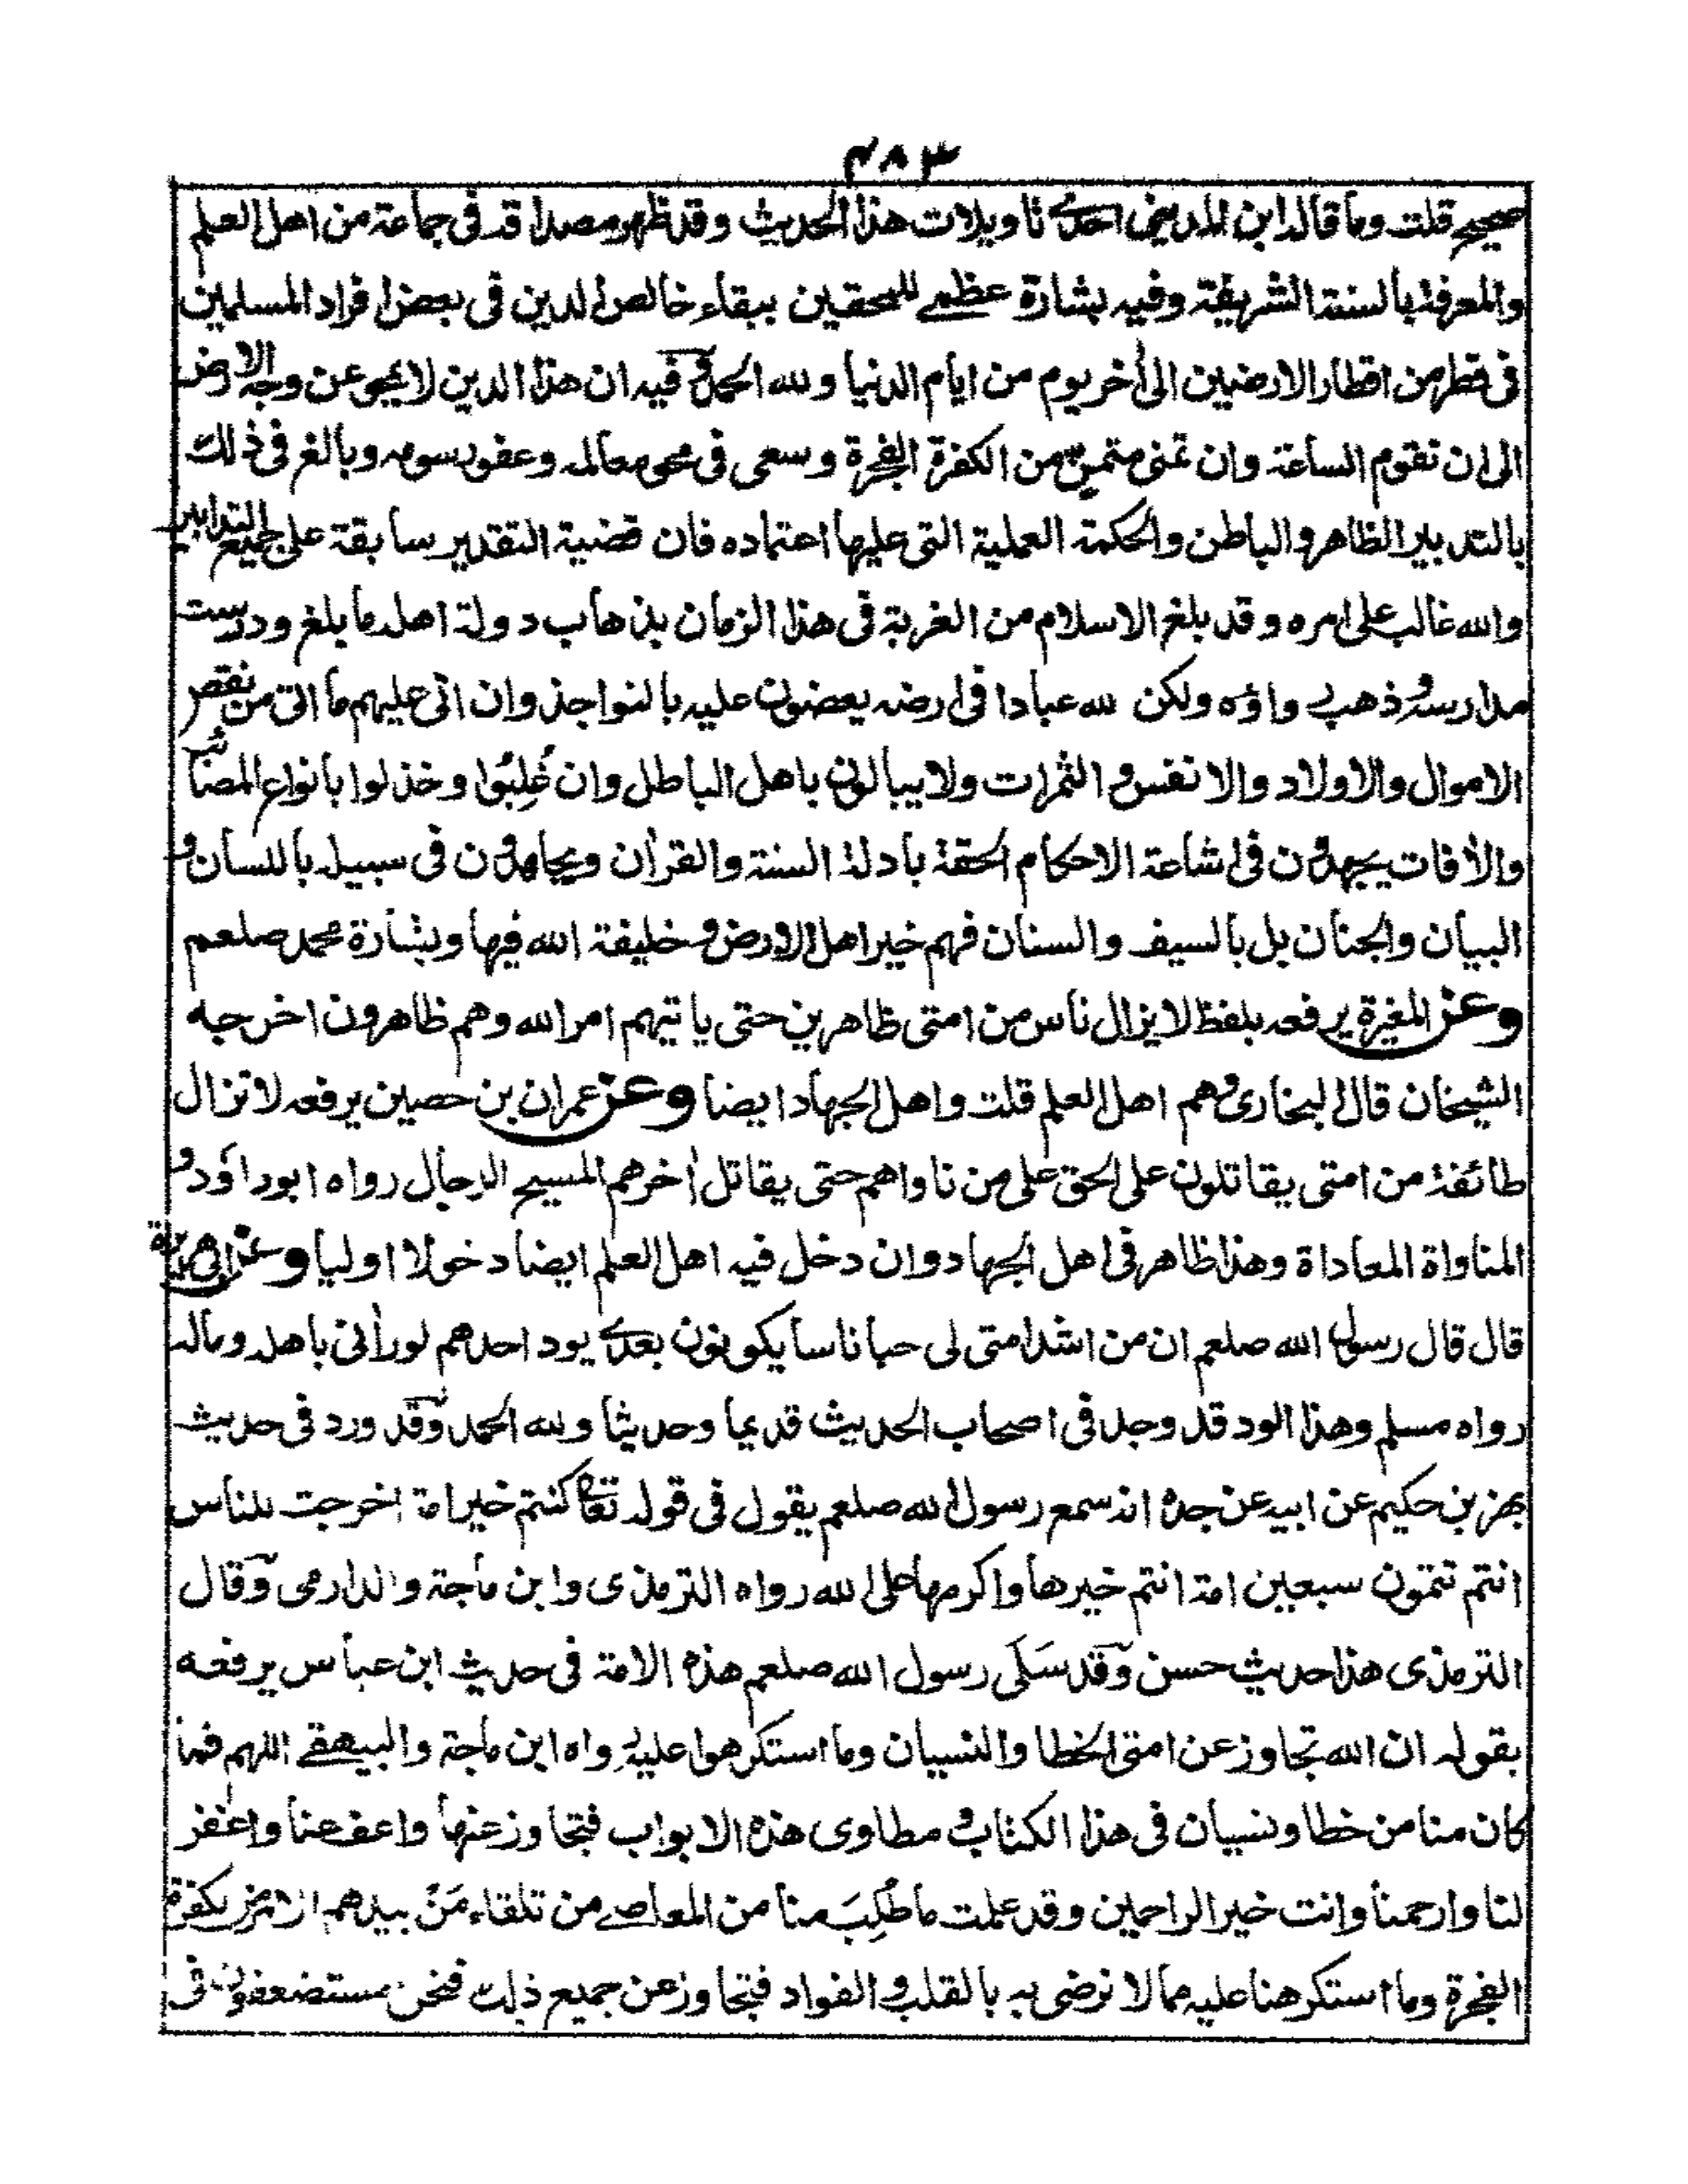 ٤٨٣
صحيح قلت وما قاله ابن المديني احدى تاويلات هذا الحديث وقد ظهر مصداقه في جماعة من اهل العلم
والمعرفة بالسنة الشريفة وفيه بشارة عظمى للمحقين ببقاء خالص الدين في بعض افراد المسلمين
في قطر من اقطار الارضين الى اخر يوم من ايام الدنيا ولله الحمد وفيه ان هذا الدين لا يمحى عن وجه الارض
الى ان تقوم الساعة وان تمنى متمن من الكفرة الفجرة وسعى في محو معالمه وعفو رسومه وبالغ في ذلك
بالتدبير الظاهر والباطن والحكمة العملية التي عليها اعتماده فان قضية التقدير سابقة على جميع التدابير
والله غالب على امره وقد بلغ الاسلام من الغربة في هذا الزمان بذهاب دولة اهله ما بلغ ودرست
مدارسه وذهب رواؤه ولكن لله عبادا في ارضه يعضون عليه بالنواجذ وان اتى عليهم ما اتى من نقص
الاموال والاولاد والانفس والثمرات ولا يبالون باهل الباطل وان غُلِبُوا وخذلوا بانواع المصائب
والأفات يجهدون في اشاعة الاحكام الحقة بادلة السنة والقرأن ويجاهدون في سبيله باللسان و
البيان والجنان بل بالسيف والسنان فهم خير اهل الارض وخليفة الله فيها وبشارة محمد صلعم
وعن المغيرة يرفعه بلفظ لا يزال ناس من امتي ظاهرين حتى ياتيهم امر الله وهم ظاهرون اخرجه
الشيخان قال البخاري وهم اهل العلم قلت واهل الجهاد ايضا وعن عمران بن حصين يرفعه لا تزال
طائفة من امتي يقاتلون على الحق على من ناواهم حتى يقاتل أخرهم المسيح الدجال رواه ابو داؤد و
المناواة المعاداة وهذا ظاهر في اهل الجهاد وان دخل فيه اهل العلم ايضا دخولا اوليا وعن ابي هريرة
قال قال رسول الله صلعم ان من اشد امتي لي حبا ناسا يكونون بعدي يود احدهم لو رأني باهله وماله
رواه مسلم وهذا الود قد وجد في اصحاب الحديث قديما وحديثا ولله الحمد وقد ورد في حديث
بهز بن حكيم عن ابيه عن جده انه سمع رسول الله صلعم يقول في قوله تعالى كنتم خير امة اخرجت للناس
انتم تتمون سبعين امة انتم خيرها واكرمها على الله رواه الترمذي وابن ماجة والدارمي وقال
الترمذي هذا حديث حسن وقد سَلَّى رسول الله صلعم هذه الامة في حديث ابن عباس يرفعه
بقوله ان الله تجاوز عن امتي الخطا والنسيان وما استكرهوا عليه رواه ابن ماجة والبيهقي اللهم فما
كان منا من خطا ونسيان في هذا الكتاب و مطاوى هذه الابواب فتجاوز عنها واعف عنا واغفر
لنا وارحمنا وانت خير الراحمين وقد علمت ما طُلِبَ منا من المعاصي من تلقاء مَنْ بيدهم الامر من كفرة
الفجرة وما استكرهنا عليه مما لا نرضى به بالقلب والفواد فتجاوز عن جميع ذلك فنحن مستضعفون في